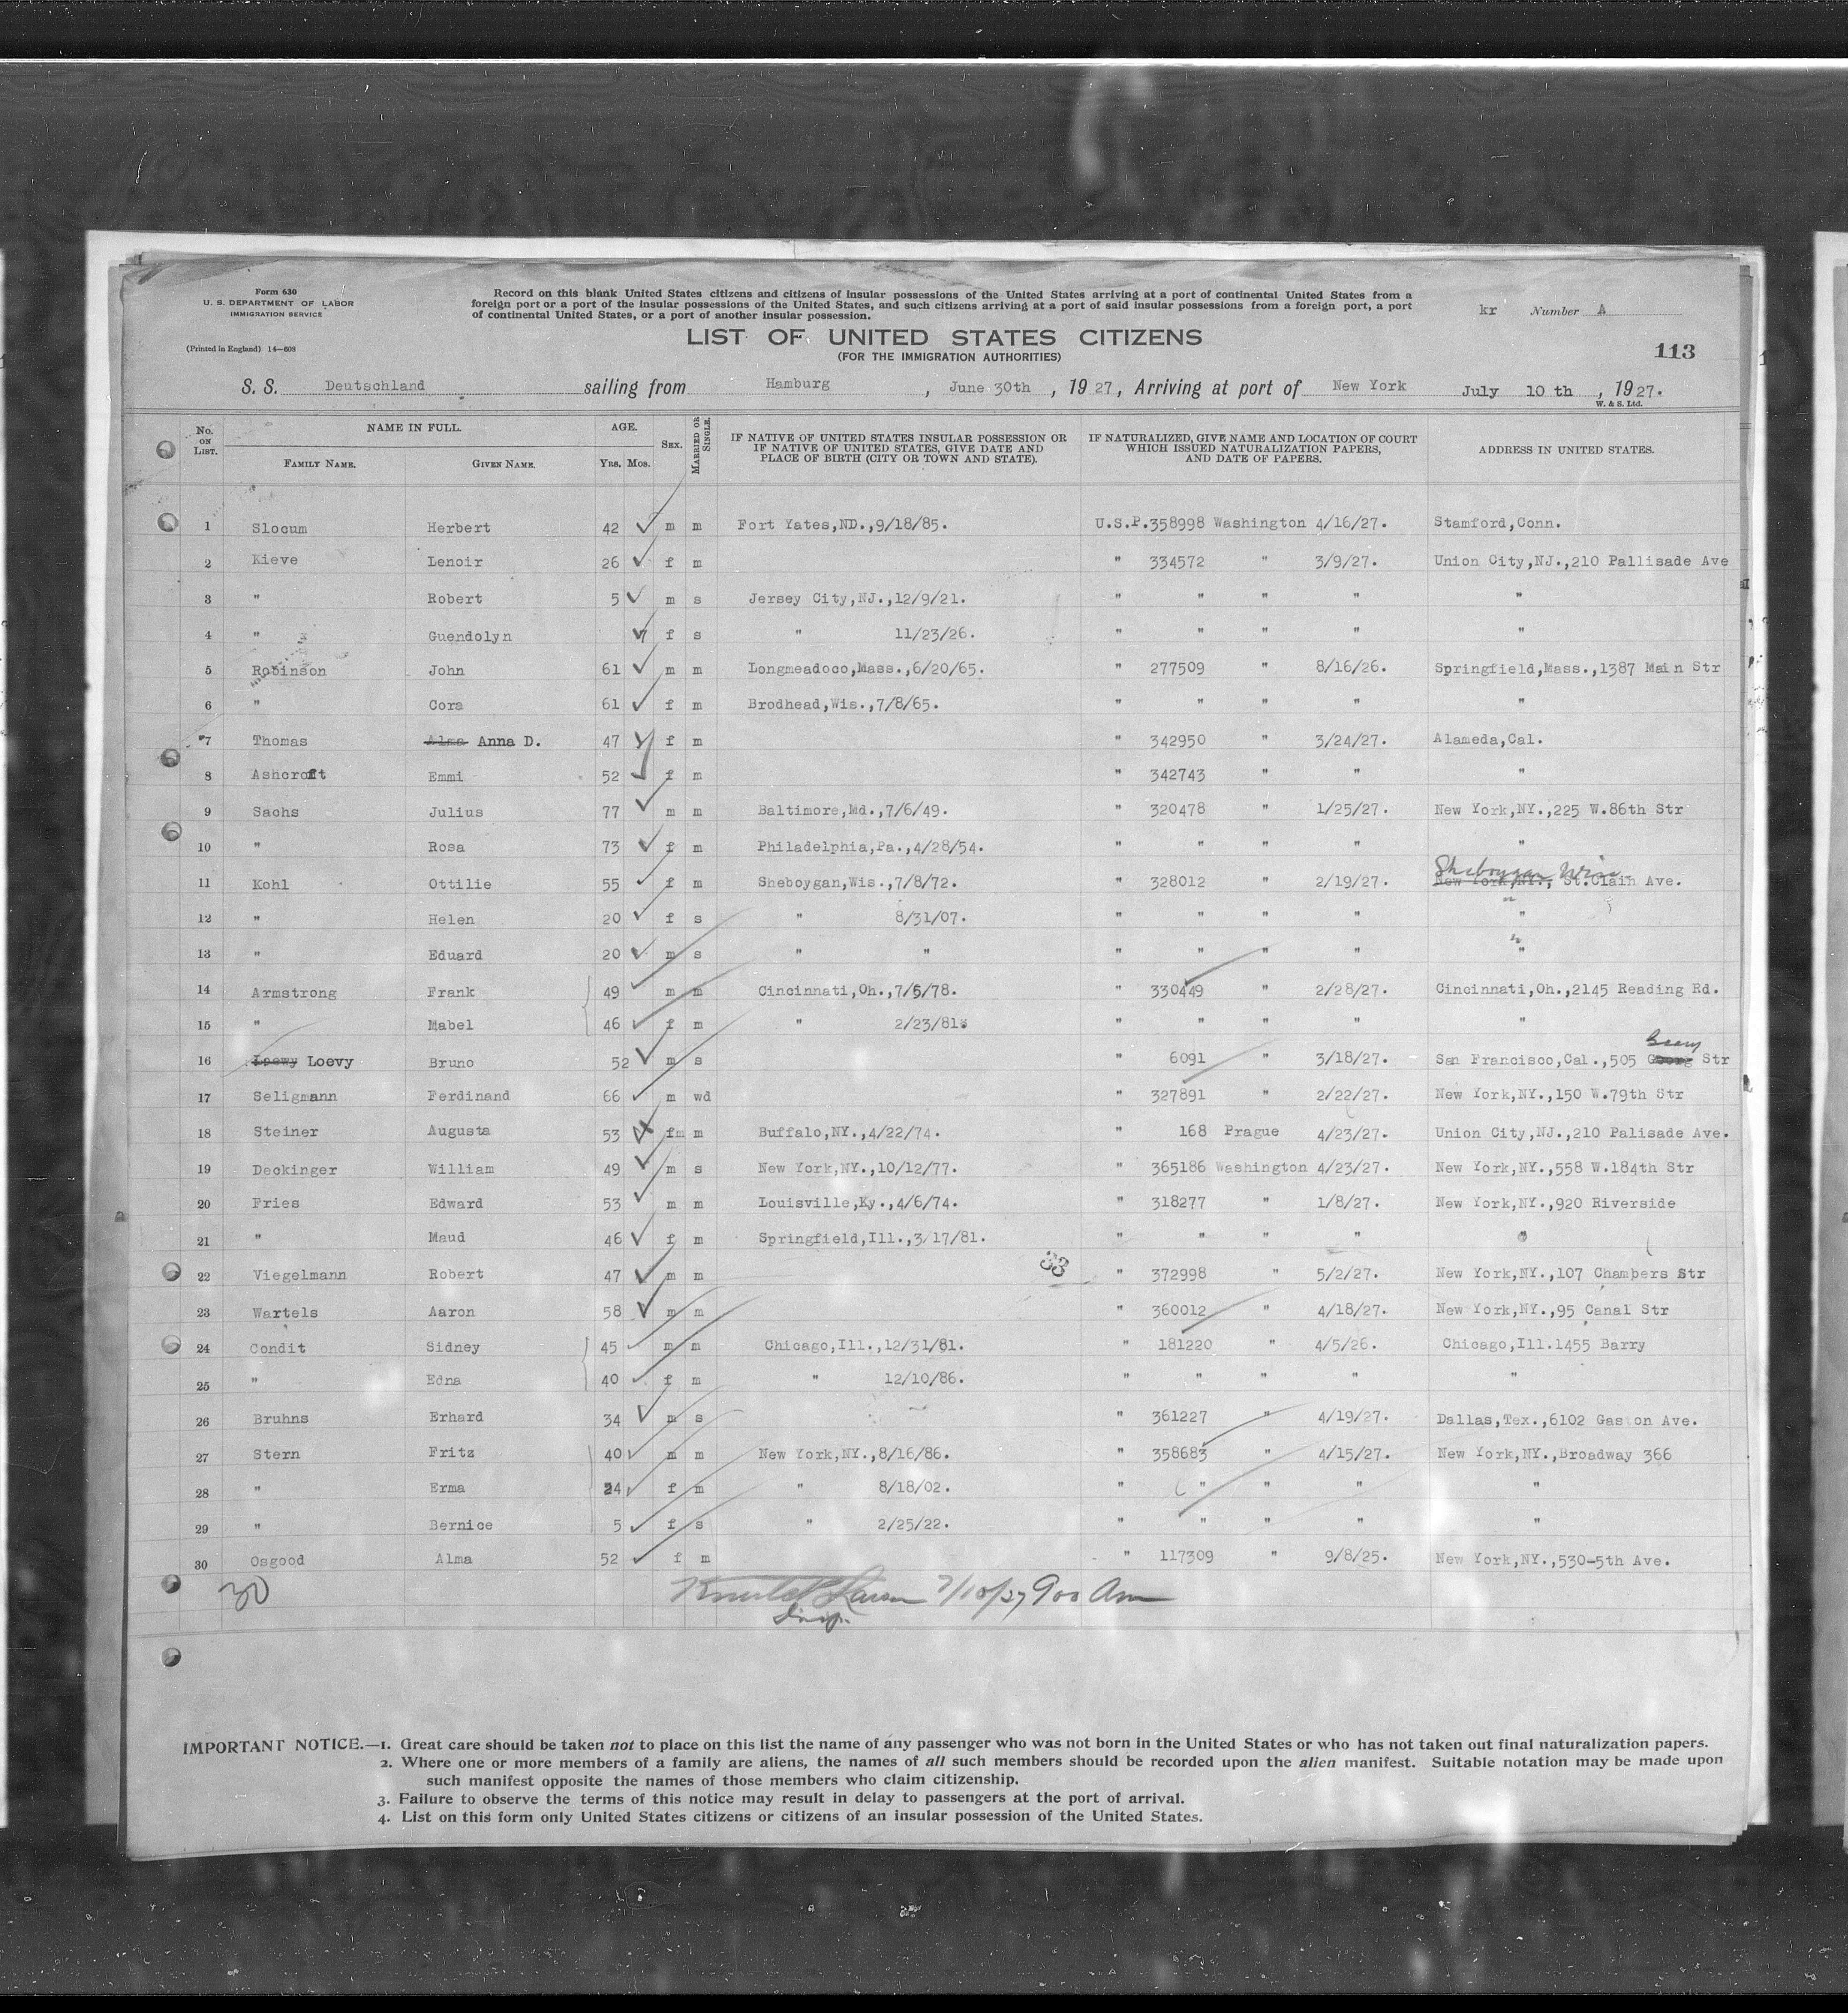 Form 630
U. S. DEPARTMENT OF LABOR
IMMIGRATION SERVICE
(Printed in England) 14—608
Record on this blank United States citizens and citizens of insular possessions of the United States arriving at a port of continental United States from a
foreign port or a port of the insular possessions of the United States, and such citizens arriving at a port of said insular possessions from a foreign port, a port
of continental United States, or a port of another insular possession.
kr Number A
LIST OF UNITED STATES CITIZENS
(FOR THE IMMIGRATION AUTHORITIES)
113
S. S. Deutschland sailing from Hamburg, June 30th, 1927, Arriving at port of New York July 10 th, 1927.
W. & S. Ltd.
No. ON LIST. NAME IN FULL. FAMILY NAME. GIVEN NAME. AGE. Yrs. Mos. SEX. MARRIED OR SINGLE. IF NATIVE OF UNITED STATES INSULAR POSSESSION OR IF NATIVE OF UNITED STATES, GIVE DATE AND PLACE OF BIRTH (CITY OR TOWN AND STATE). IF NATURALIZED, GIVE NAME AND LOCATION OF COURT WHICH ISSUED NATURALIZATION PAPERS, AND DATE OF PAPERS. ADDRESS IN UNITED STATES.
1 Slocum Herbert 42 m m Fort Yates,ND.,9/18/85. U.S.P.358998 Washington 4/16/27. Stamford,Conn.
2 Kieve Lenoir 26 f m " 334572 " 3/9/27. Union City,NJ.,210 Pallisade Ave
3 " Robert 5 m s Jersey City,NJ.,12/9/21. " " " " "
4 " Guendolyn 7 f s " 11/23/26. " " " " "
5 Robinson John 61 m m Longmeadoco,Mass.,6/20/65. " 277509 " 8/16/26. Springfield,Mass.,1387 Main Str
6 " Cora 61 f m Brodhead,Wis.,7/8/65. " " " " "
7 Thomas Alma Anna D. 47 f m " 342950 " 3/24/27. Alameda,Cal.
8 Ashcroft Emmi 52 f m " 342743 " " "
9 Sachs Julius 77 m m Baltimore,Md.,7/6/49. " 320478 " 1/25/27. New York,NY.,225 W.86th Str
10 " Rosa 73 f m Philadelphia,Pa.,4/28/54. " " " " "
11 Kohl Ottilie 55 f m Sheboygan,Wis.,7/8/72. " 328012 " 2/19/27. Sheboygan Wis New York,NY., St.Clain Ave.
12 " Helen 20 f s " 8/31/07. " " " " "
13 " Eduard 20 m s " " " " " " "
14 Armstrong Frank 49 m m Cincinnati,Oh.,7/5/78. " 330449 " 2/28/27. Cincinnati,Oh.,2145 Reading Rd.
15 " Mabel 46 f m " 2/23/81. " " " " "
16 Loewy Loevy Bruno 52 m s " 6091 " 3/18/27. San Francisco,Cal.,505 Geary Str
17 Seligmann Ferdinand 66 m wd " 327891 " 2/22/27. New York,NY.,150 W.79th Str
18 Steiner Augusta 53 fm m Buffalo,NY.,4/22/74. " 168 Prague 4/23/27. Union City,NJ.,210 Palisade Ave.
19 Deckinger William 49 m s New York,NY.,10/12/77. " 365186 Washington 4/23/27. New York,NY.,558 W.184th Str
20 Fries Edward 53 m m Louisville,Ky.,4/6/74. " 318277 " 1/8/27. New York,NY.,920 Riverside
21 " Maud 46 f m Springfield,Ill.,3/17/81. " " " " "
33
22 Viegelmann Robert 47 m m " 372998 " 5/2/27. New York,NY.,107 Chambers Str
23 Wartels Aaron 58 m m " 360012 " 4/18/27. New York,NY.,95 Canal Str
24 Condit Sidney 45 m m Chicago,Ill.,12/31/81. " 181220 " 4/5/26. Chicago,Ill.1455 Barry
25 " Edna 40 f m " 12/10/86. " " " " "
26 Bruhns Erhard 34 m s " 361227 " 4/19/27. Dallas,Tex.,6102 Gaston Ave.
27 Stern Fritz 40 m m New York,NY.,8/16/86. " 358683 " 4/15/27. New York,NY.,Broadway 366
28 " Erma 24 f m " 8/18/02. " " " " "
29 " Bernice 5 f s " 2/25/22. " " " " "
30 Osgood Alma 52 f m " 117309 " 9/8/25. New York,NY.,530-5th Ave.
30 7/10/27 900 Am
Insp.
IMPORTANT NOTICE.—1. Great care should be taken not to place on this list the name of any passenger who was not born in the United States or who has not taken out final naturalization papers.
2. Where one or more members of a family are aliens, the names of all such members should be recorded upon the alien manifest. Suitable notation may be made upon
such manifest opposite the names of those members who claim citizenship.
3. Failure to observe the terms of this notice may result in delay to passengers at the port of arrival.
4. List on this form only United States citizens or citizens of an insular possession of the United States.